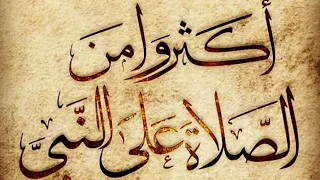 أكثروا من
الصَّلاة على النَّبيّ